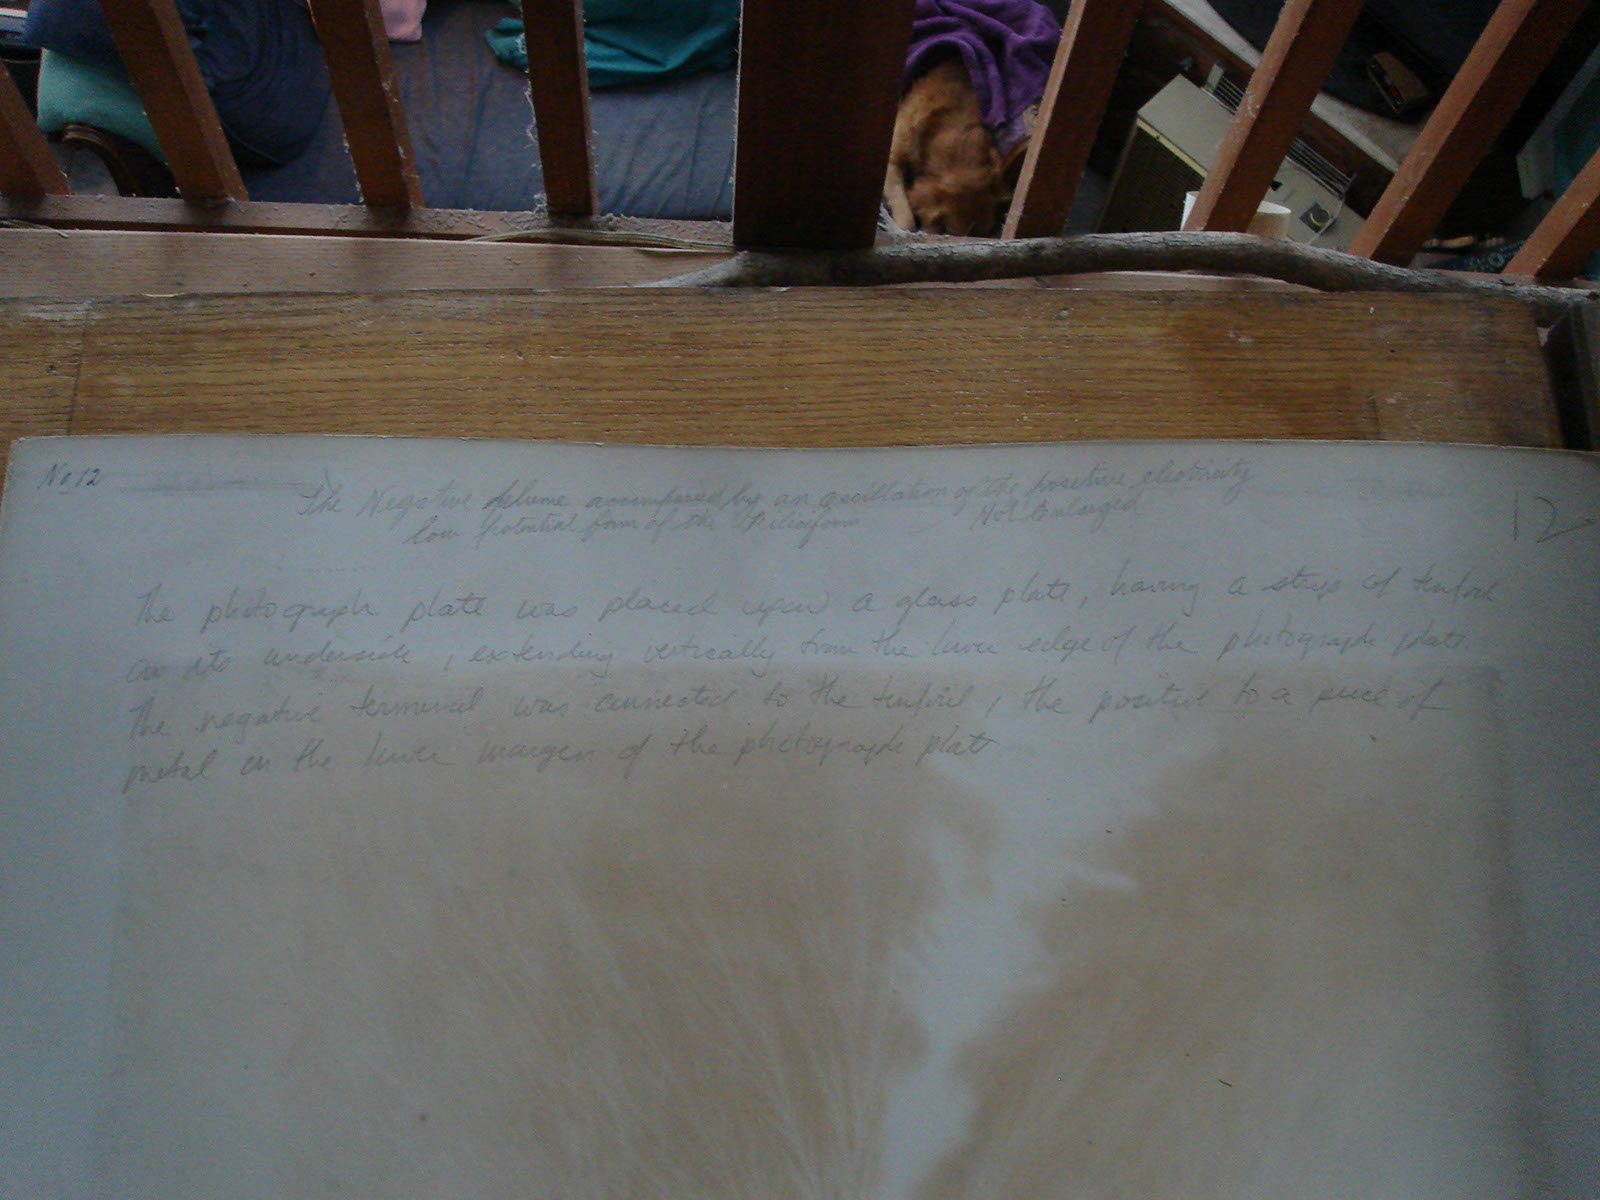 No 12
The Negative plume accompanied by an oscillation of the positive electricity
low potential form of the Not Enlarged
12
The photograph plate was placed upon a glass plate, having a strip of tinfoil
on its underside, extending vertically from the lower edge of the photograph plate.
The negative terminal was connected to the tinfoil, the positive to a piece of
metal on the lower margin of the photograph plate